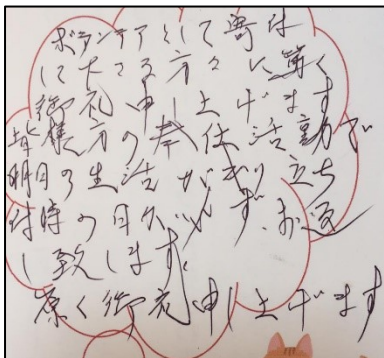 ボランテアとして寄付
して下さる方々に厚く
御礼申し上げます
皆様方の奉仕活動で
明日の生活がなり立ち
何時の日か必ず、お返
し致します。
厚く御礼申し上げます